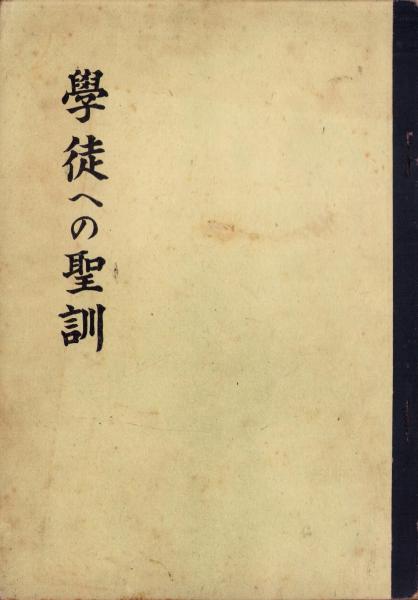 學徒への聖訓